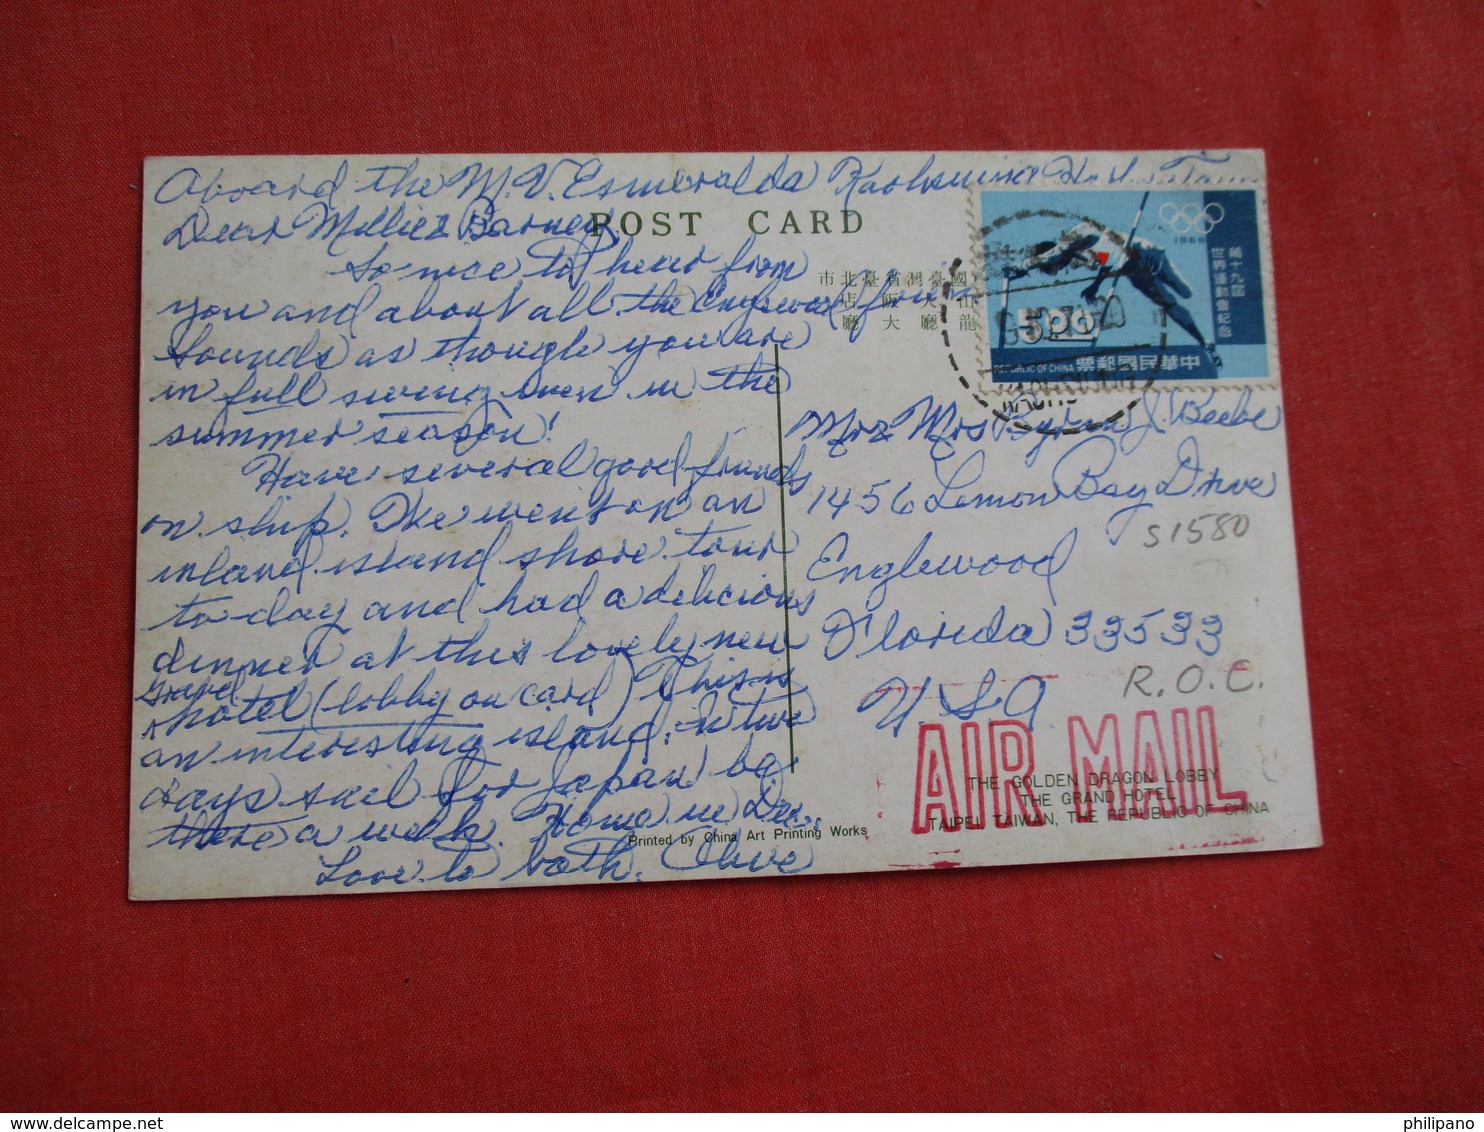 Aboard the M.V. Esmeralda Kaohsiung
Dear Millie & Barney,
POST CARD
So nice to hear from
you and about all the Englewood
Sounds as though you are
in full swing even in the
summer season!
Have several good friends
on ship. We went on an
inland island shore tour
to-day and had a delicious
dinner at this lovely new
Grand
hotel (lobby on card) This is
an interesting island. In two
days sail for Japan - be
there a week. Home in Dec.
Love to both. Olive
市北臺省灣臺國
店飯大山
廳大廳龍
1968
第十九屆
世界運動會紀念
500
REPUBLIC OF CHINA
票郵國民華中
Mr & Mrs Byron J. Beebe
1456 Lemon Bay Drive
S1580
Englewood
Florida 33533
R.O.C.
U.S.A
AIR MAIL
THE GOLDEN DRAGON LOBBY
THE GRAND HOTEL
TAIPEI, TAIWAN, THE REPUBLIC OF CHINA
Printed by China Art Printing Works
philipano